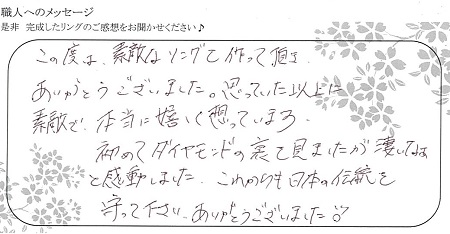 職人へのメッセージ
是非 完成したリングのご感想をお聞かせください♪
この度は、素敵なリングを作って頂き
ありがとうございました。思っていた以上に
素敵で、本当に嬉しく想っています。
初めてダイヤモンドの裏を見ましたが凄いですね
と感動しました。これからも日本の伝統を
守って下さい。ありがとうございました。